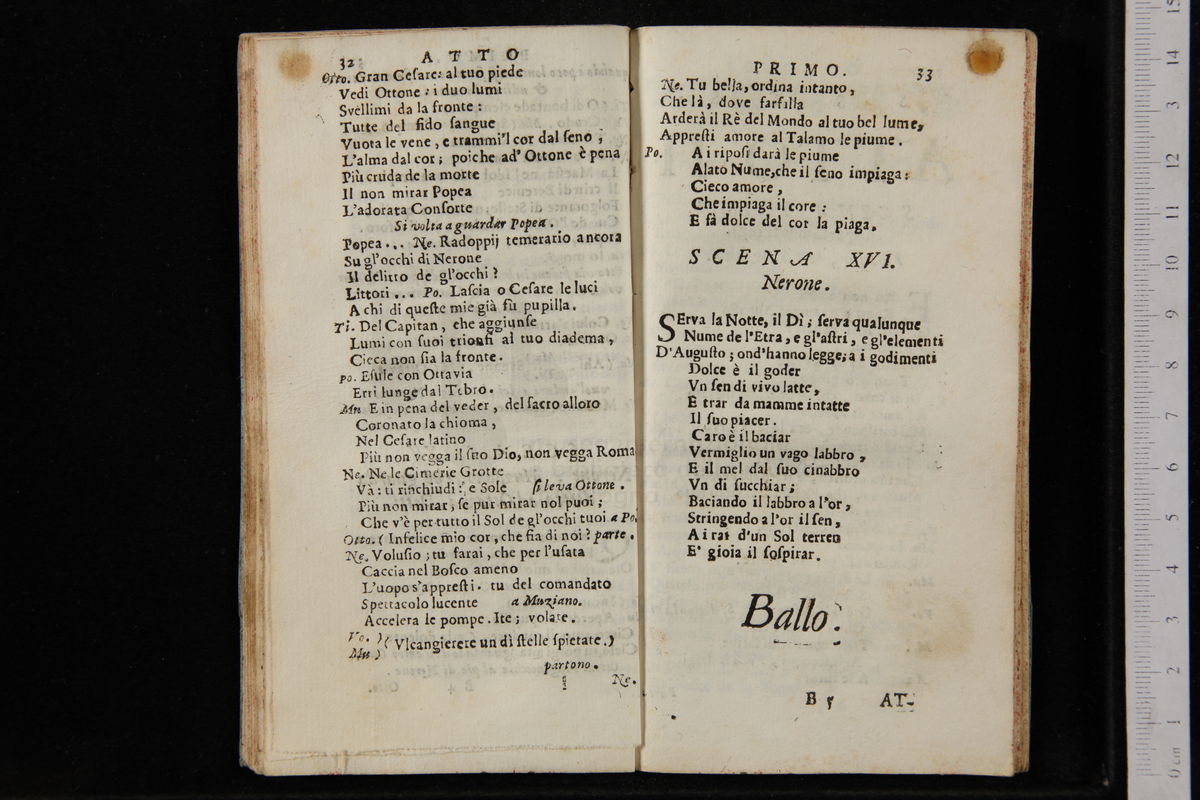 32 ATTO
Otto. Gran Ceſare: al tuo piede
Vedi Ottone: i duo lumi
Svellimi da la fronte:
Tutte del fido ſangue
Vuota le vene, e trammi'l cor dal ſeno;
L'alma dal cor; poiche ad' Ottone è pena
Più cruda de la morte
Il non mirar Popea
L'adorata Conſorte
Si volta a guardar Popea.
Popea... Ne. Radoppij temerario ancora
Su gl'occhi di Nerone
Il delitto de gl'occhi?
Littori... Po. Laſcia o Ceſare le luci
A chi di queſte mie già fù pupilla.
Ti. Del Capitan, che aggiunſe
Lumi con ſuoi trionfi al tuo diadema,
Cieca non ſia la fronte.
Po. Eſule con Ottavia
Erri lunge dal Tebro.
Mu. E in pena del veder, del ſacro alloro
Coronato la chioma,
Nel Ceſare latino
Più non vegga il ſuo Dio, non vegga Roma
Ne. Ne le Cimerie Grotte
Và: ti rinchiudi: e Sole ſi leva Ottone.
Più non mirar, ſe pur mirar nol puoi;
Che v'è per tutto il Sol de gl'occhi tuoi a Po.
Otto. (Infelice mio cor, che fia di noi? parte.
Ne. Voluſio; tu farai, che per l'uſata
Caccia nel Boſco ameno
L'uopo s'appreſti. tu del comandato
Spettacolo lucente a Muziano.
Accelera le pompe. Ite; volate.
Vo. )
Mu ) (Vi cangierete un dì ſtelle ſpietate.)
partono.
Ne.
PRIMO. 33
Ne. Tu bella, ordina intanto,
Che là, dove farfilla
Arderà il Rè del Mondo al tuo bel lume,
Appreſti amore al Talamo le piume.
Po. A i ripoſi darà le piume
Alato Nume, che il ſeno impiaga:
Cieco amore,
Che impiaga il core:
E fà dolce del cor la piaga.
SCENA XVI.
Nerone.
SErva la Notte, il Dì; ſerva qualunque
Nume de l'Etra, e gl'aſtri, e gl'elementi
D'Auguſto; ond'hanno legge; a i godimenti
Dolce è il goder
Vn ſen di vivo latte,
E trar da mamme intatte
Il ſuo piacer.
Caro è il baciar
Vermiglio un vago labbro,
E il mel dal ſuo cinabbro
Vn dì ſucchiar;
Baciando il labbro a l'or,
Stringendo a l'or il ſen,
A i rai d'un Sol terren
E' gioia il ſoſpirar.
Ballo.
B 5 AT-